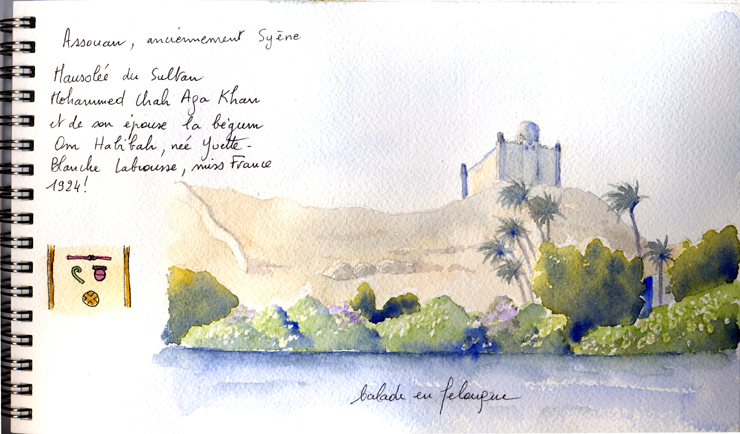 Assouan, anciennement Syène
Mausolée du Sultan
Mohammed Chah Aga Khan
et de son épouse la bégum
Om Habibah, née Yvette-
Blanche Labrousse, miss France
1924!
balade en felougue